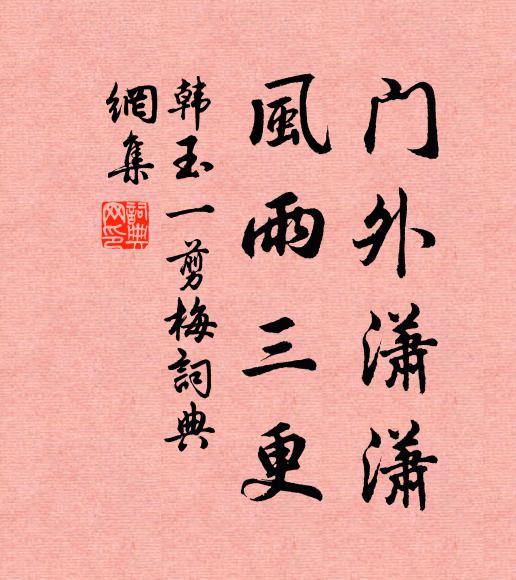 门外潇潇
風雨三更
韩玉一剪梅詞典
網集
詞典
网印